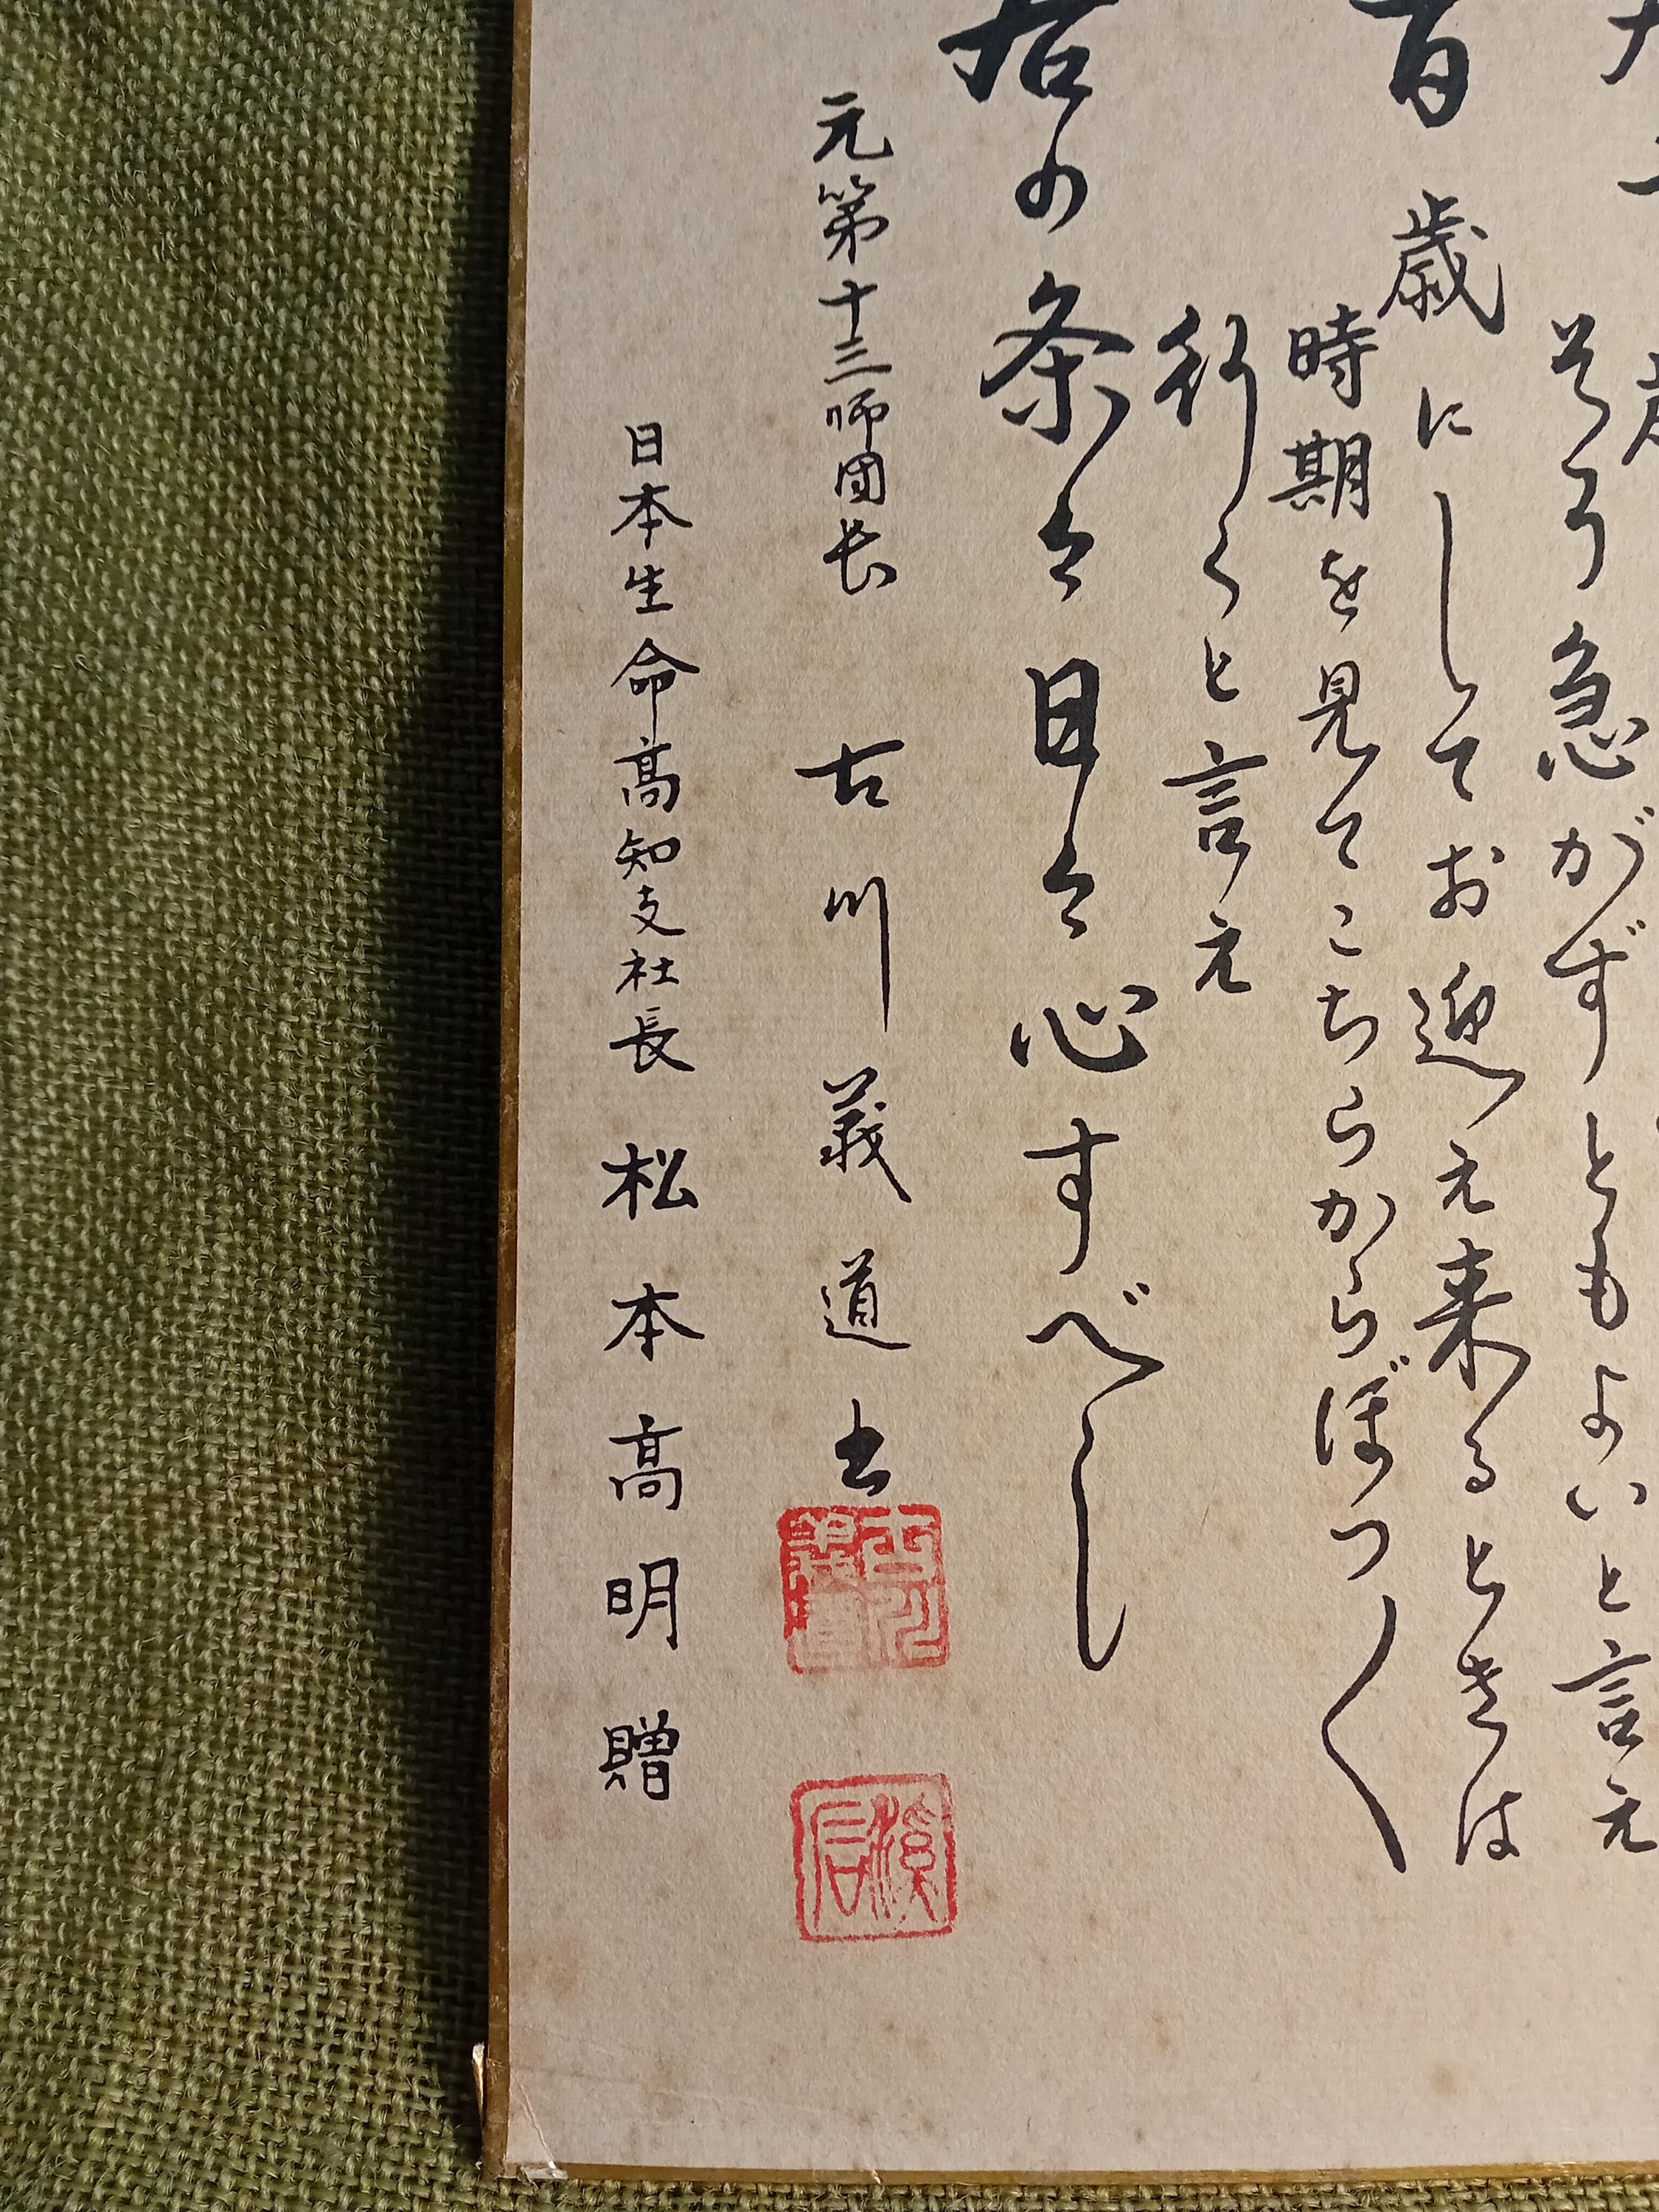 そう急がずともよいと言え
百歳にしてお迎え来るときは
時期を見てこちらからぼつ〱
行くと言え
右の条々日々心すべし
元第十三師団长 古川義道書
古川義道
日本生命髙知支社長 松本髙明贈